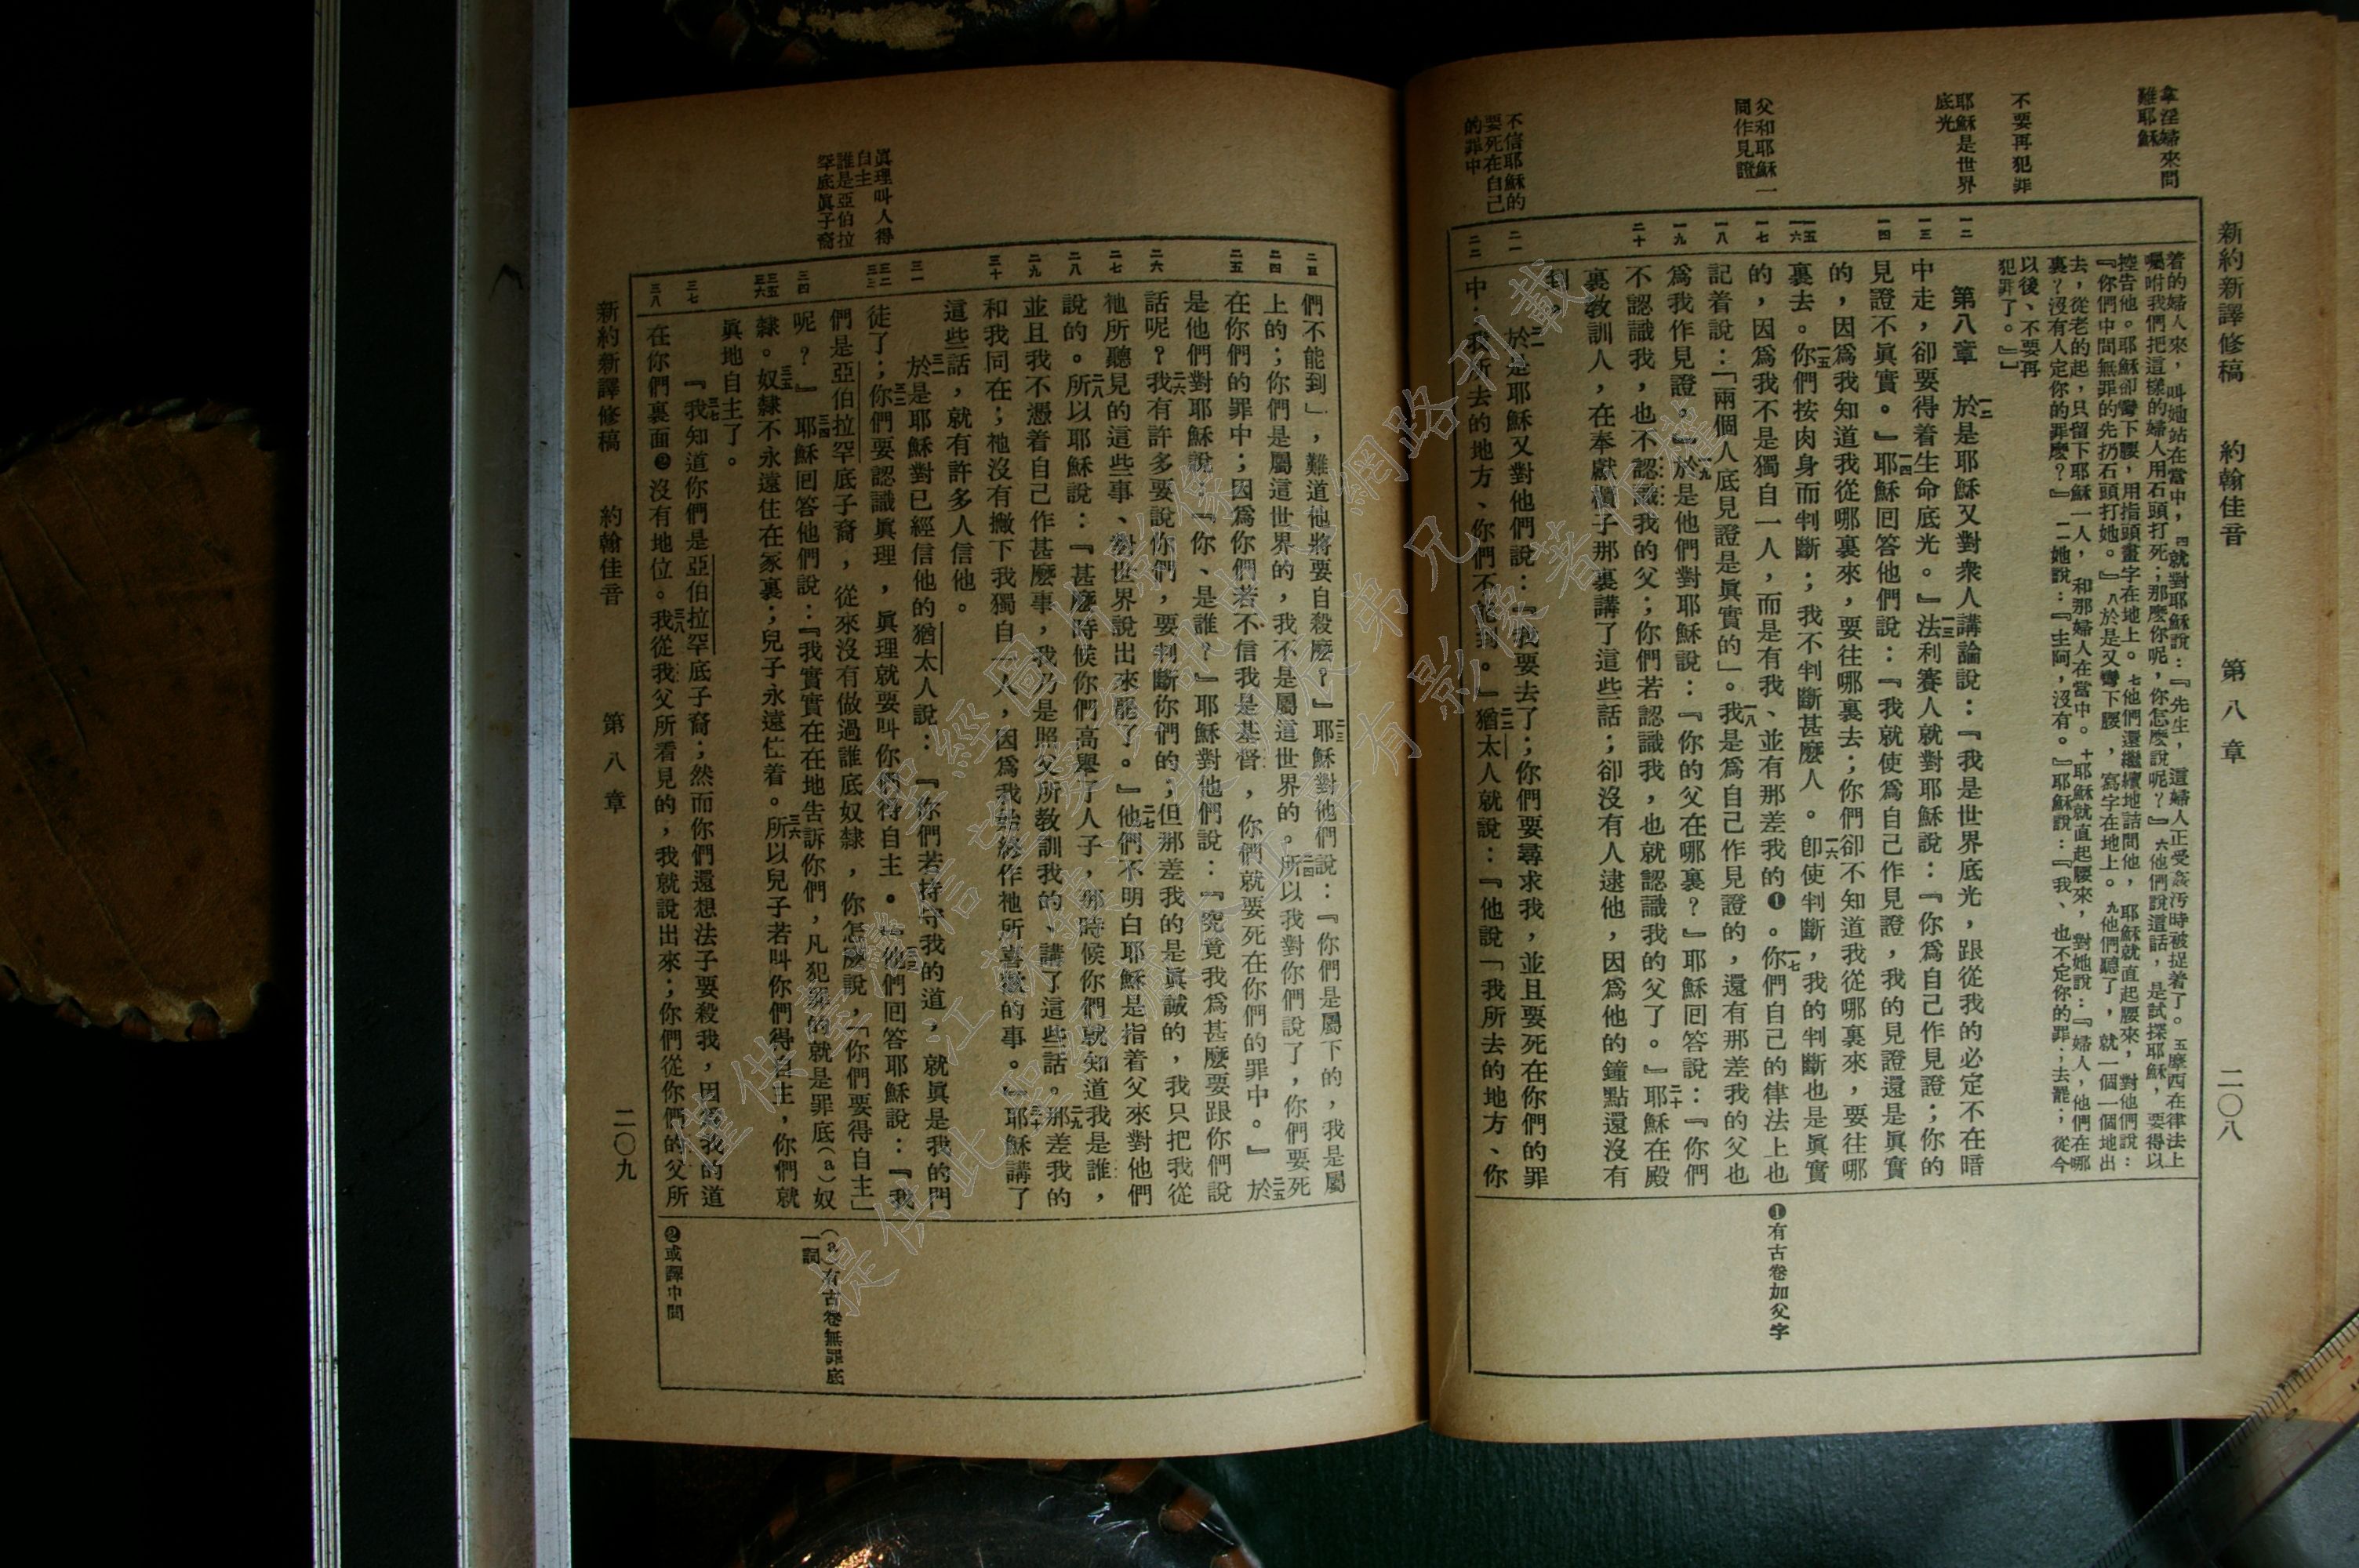 新約新譯修稿　約翰佳音　第八章　二〇八
拿淫婦來問
難耶穌
不要再犯罪
耶穌是世界
底光
父和耶穌一
同作見證
不信耶穌的
要死在自己
的罪中
着的婦人來，叫她站在當中，四就對耶穌說：『先生，這婦人正受姦汚時被捉着了。五摩西在律法上
囑咐我們把這樣的婦人用石頭打死；那麽你呢，你怎麽說呢？』六他們說這話，是試探耶穌，要得以
控告他。耶穌卻彎下腰，用指頭畫字在地上。七他們還繼續地詰問他，耶穌就直起腰來，對他們說：
『你們中間無罪的先扔石頭打她。』八於是又彎下腰，寫字在地上。九他們聽了，就一個一個地出
去，從老的起，只留下耶穌一人，和那婦人在當中。十耶穌就直起腰來，對她說：『婦人，他們在哪
裏？沒有人定你的罪麽？』一一她說：『主阿，沒有。』耶穌說：『我、也不定你的罪；去罷；從今
以後、不要再
犯罪了。』』
一二
第八章　一二於是耶穌又對衆人講論說：『我是世界底光，跟從我的必定不在暗
一三
中走，卻要得着生命底光。』一三法利賽人就對耶穌說：『你爲自己作見證；你的
一四
見證不眞實。』一四耶穌回答他們說：『我就使爲自己作見證，我的見證還是眞實
的，因爲我知道我從哪裏來，要往哪裏去；你們卻不知道我從哪裏來，要往哪
一五
一六
裏去。一五你們按肉身而判斷；我不判斷甚麽人。一六卽使判斷，我的判斷也是眞實
一七
的，因爲我不是獨自一人，而是有我、並有那差我的❶。一七你們自己的律法上也
一八
記着說：「兩個人底見證是眞實的」。一八我是爲自己作見證的，還有那差我的父也
一九
爲我作見證，』一九於是他們對耶穌說：『你的父在哪裏？』耶穌回答說：『你們
二十
不認識我，也不認識我的父；你們若認識我，也就認識我的父了。』二十耶穌在殿
裏教訓人，在奉獻櫃子那裏講了這些話；卻沒有人逮他，因爲他的鐘點還沒有
到，
二一
二一於是耶穌又對他們說：『我要去了；你們要尋求我，並且要死在你們的罪
二二
中；我所去的地方、你們不能到。』二二猶太人就說：『他說「我所去的地方、你
❶有古卷加父字
眞理叫人得
自主
誰是亞伯拉
罕底眞子裔
二三
們不能到」，難道他將要自殺麽？』二三耶穌對他們說：『你們是屬下的，我是屬
二四
上的；你們是屬這世界的，我不是屬這世界的。二四所以我對你們說了，你們要死
二五
在你們的罪中；因爲你們若不信我是基督，你們就要死在你們的罪中。』二五於
是他們對耶穌說：『你、是誰？』耶穌對他們說：『究竟我爲甚麽要跟你們說
二六
話呢？二六我有許多要說你們，要判斷你們的；但那差我的是眞誠的，我只把我從
二七
祂所聽見的這些事、對世界說出來罷了。』二七他們不明白耶穌是指着父來對他們
二八
說的。二八所以耶穌說：『甚麽時候你們高舉了人子，那時候你們就知道我是誰，
二九
並且我不憑着自己作甚麽事，我乃是照父所教訓我的、講了這些話。二九那差我的
三十
和我同在；祂沒有撇下我獨自一人，因爲我始終作祂所喜歡的事。』三十耶穌講了
這些話，就有許多人信他。
三一
三一於是耶穌對已經信他的猶太人說：『你們若持守我的道，就眞是我的門
三二
三三
徒了；三二你們要認識眞理，眞理就要叫你們得自主。』三三他們回答耶穌說：『我
們是亞伯拉罕底子裔，從來沒有做過誰底奴隸，你怎麽說，「你們要得自主」
三四
呢？』三四耶穌回答他們說：『我實實在在地告訴你們，凡犯罪的就是罪底(a)奴
三五
三六
隸。三五奴隸不永遠住在家裏；兒子永遠住着。三六所以兒子若叫你們得自主，你們就
眞地自主了。
三七
『三七我知道你們是亞伯拉罕底子裔；然而你們還想法子要殺我，因爲我的道
三八
在你們裏面❷沒有地位。三八我從我父所看見的，我就說出來；你們從你們的父所
(a)有古卷無罪底
一詞
❷或譯中間
新約新譯修稿　約翰佳音　第八章　二〇九